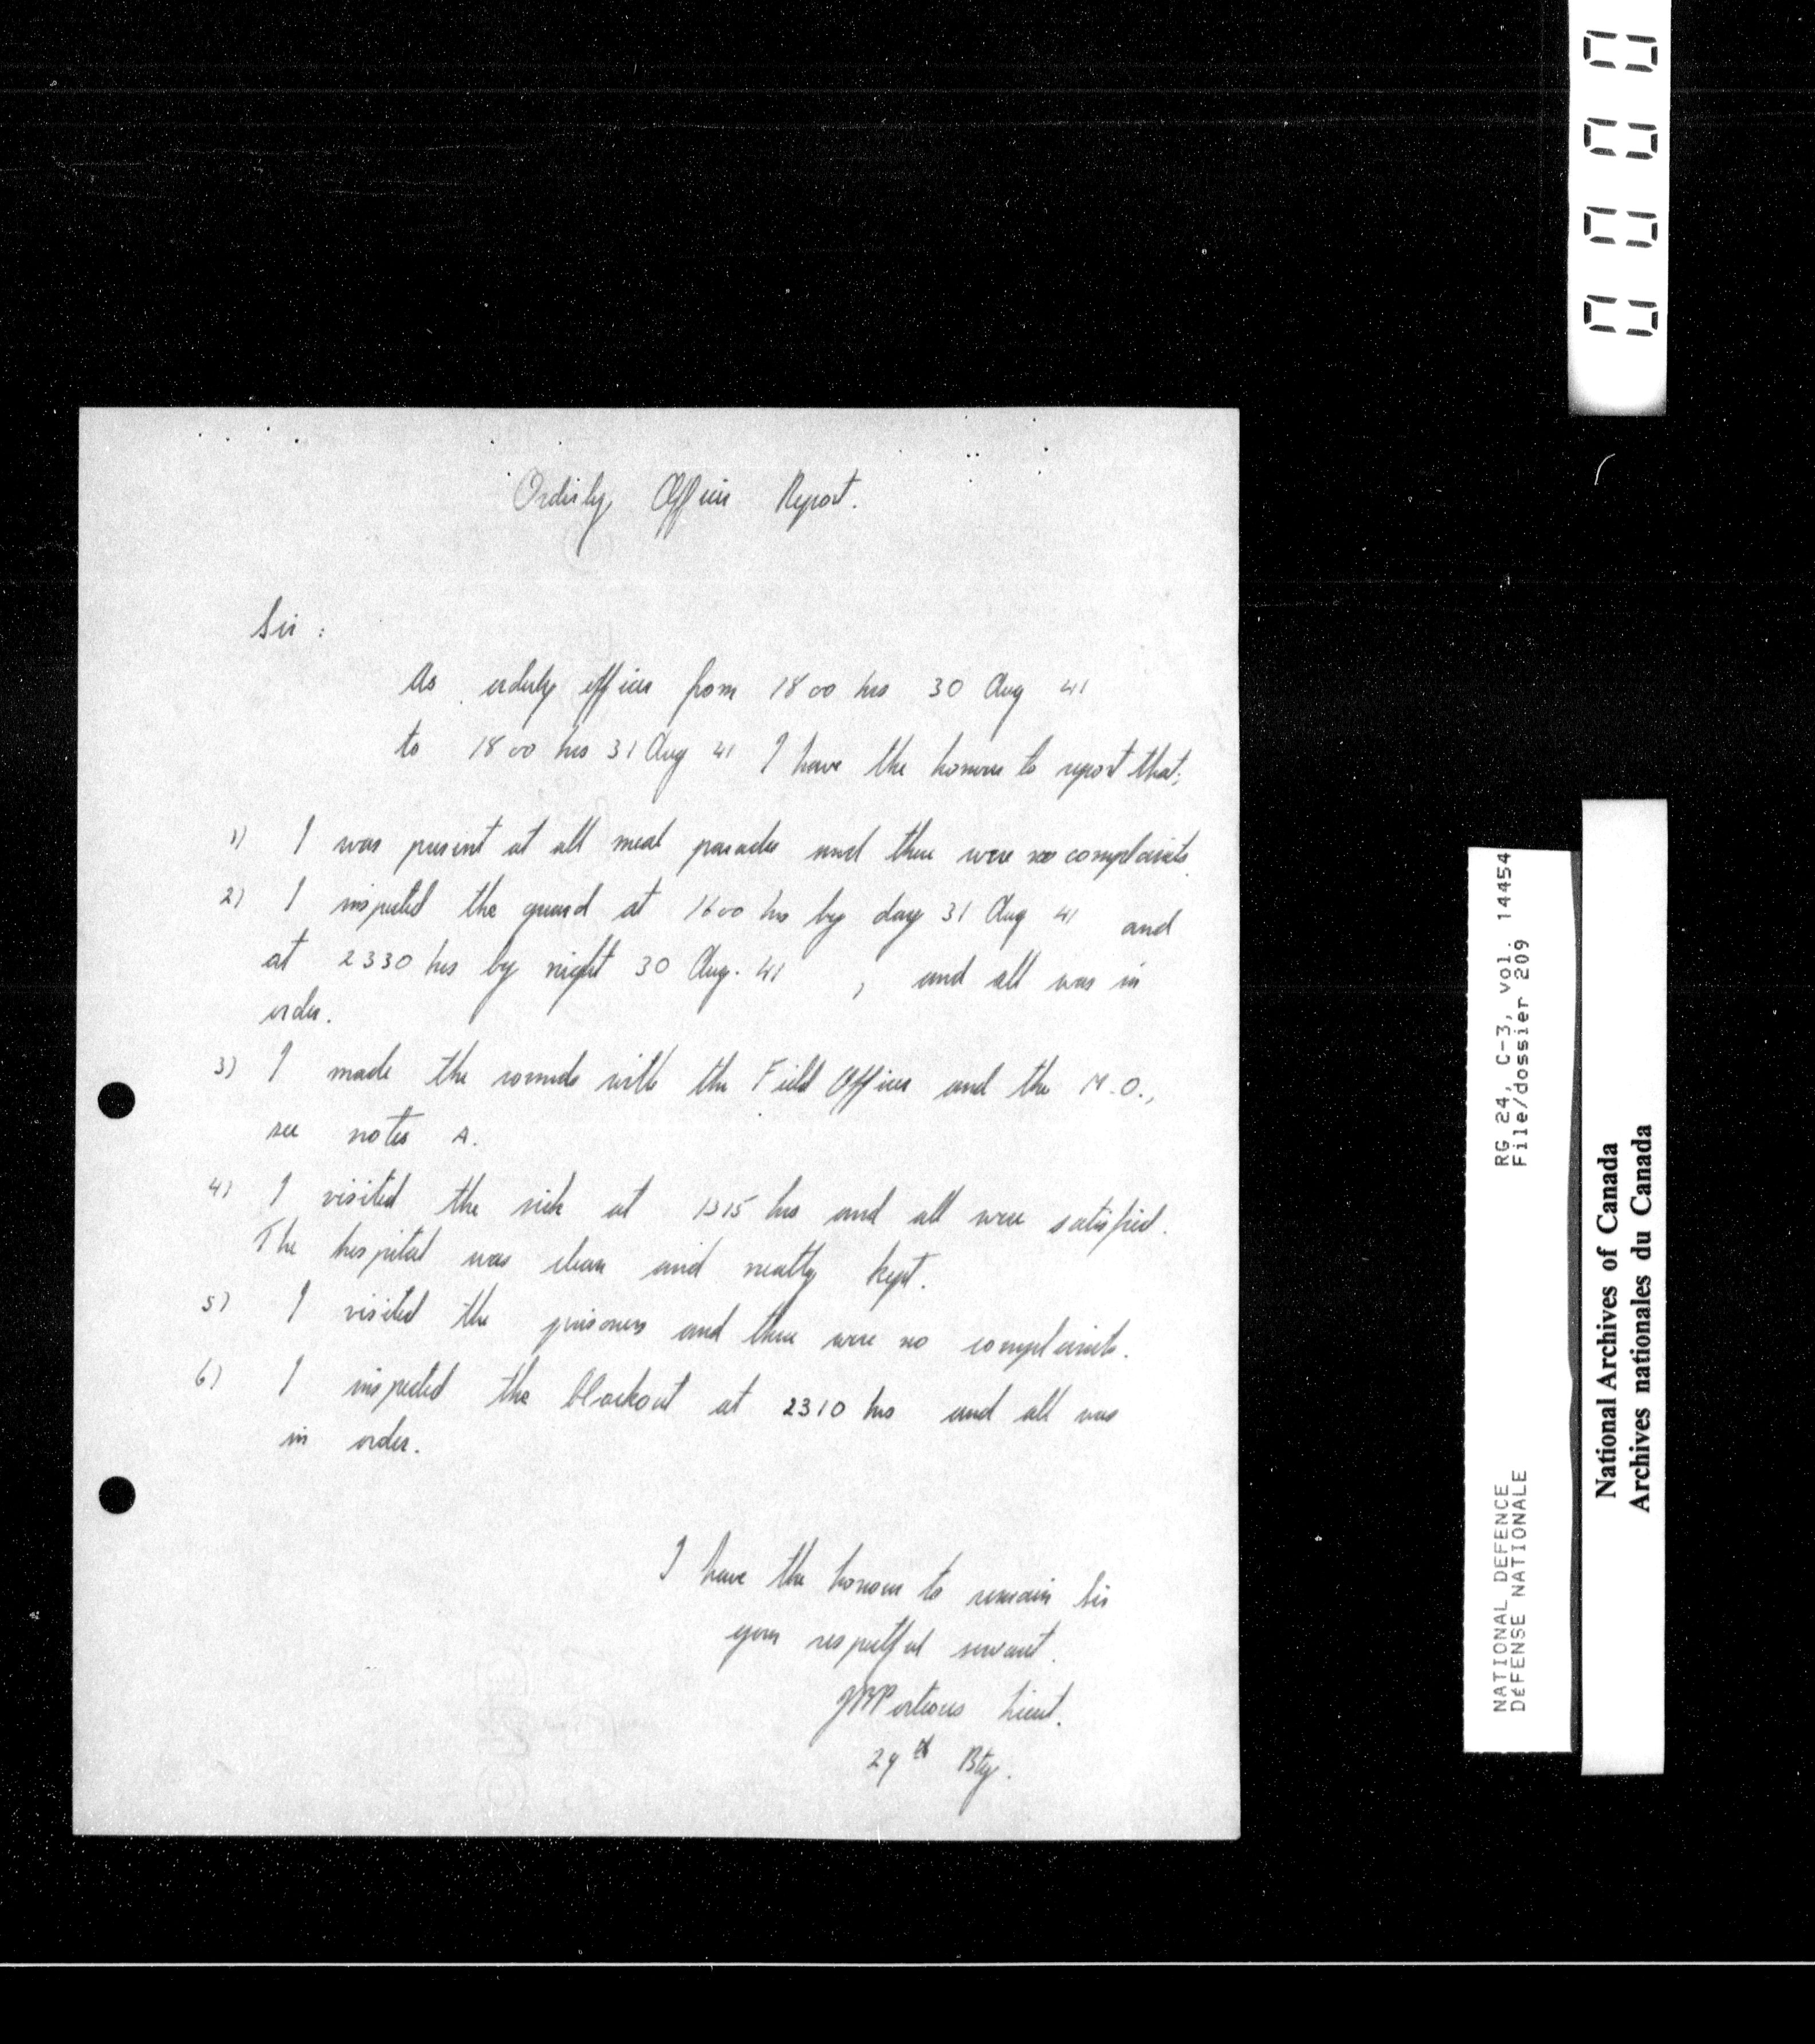 Orderly Officer Report.
Sir :
As orderly officer from 1800 hrs 30 Aug 41
to 1800 hrs 31 Aug 41 I have the honour to report that;
1) I was present at all meal parades and there were no complaints.
2) I inspected the guard at 1600 hrs by day 31 Aug 41 and
at 2330 hrs by night 30 Aug. 41 , and all was in
order.
3) I made the rounds with the Field Officer and the M.O.,
see notes A.
4) I visited the sick at 1315 hrs and all were satisfied.
The hospital was clean and neatly kept.
5) I visited the prisoners and there were no complaints.
6) I inspected the blackout at 2310 hrs and all was
in order.
I have the honour to remain Sir
your respectful servant.
Lieut.
29th Bty.
0000
RG 24, C-3, vol. 14454
File/dossier 209
NATIONAL DEFENCE
DÉFENSE NATIONALE
National Archives of Canada
Archives nationales du Canada